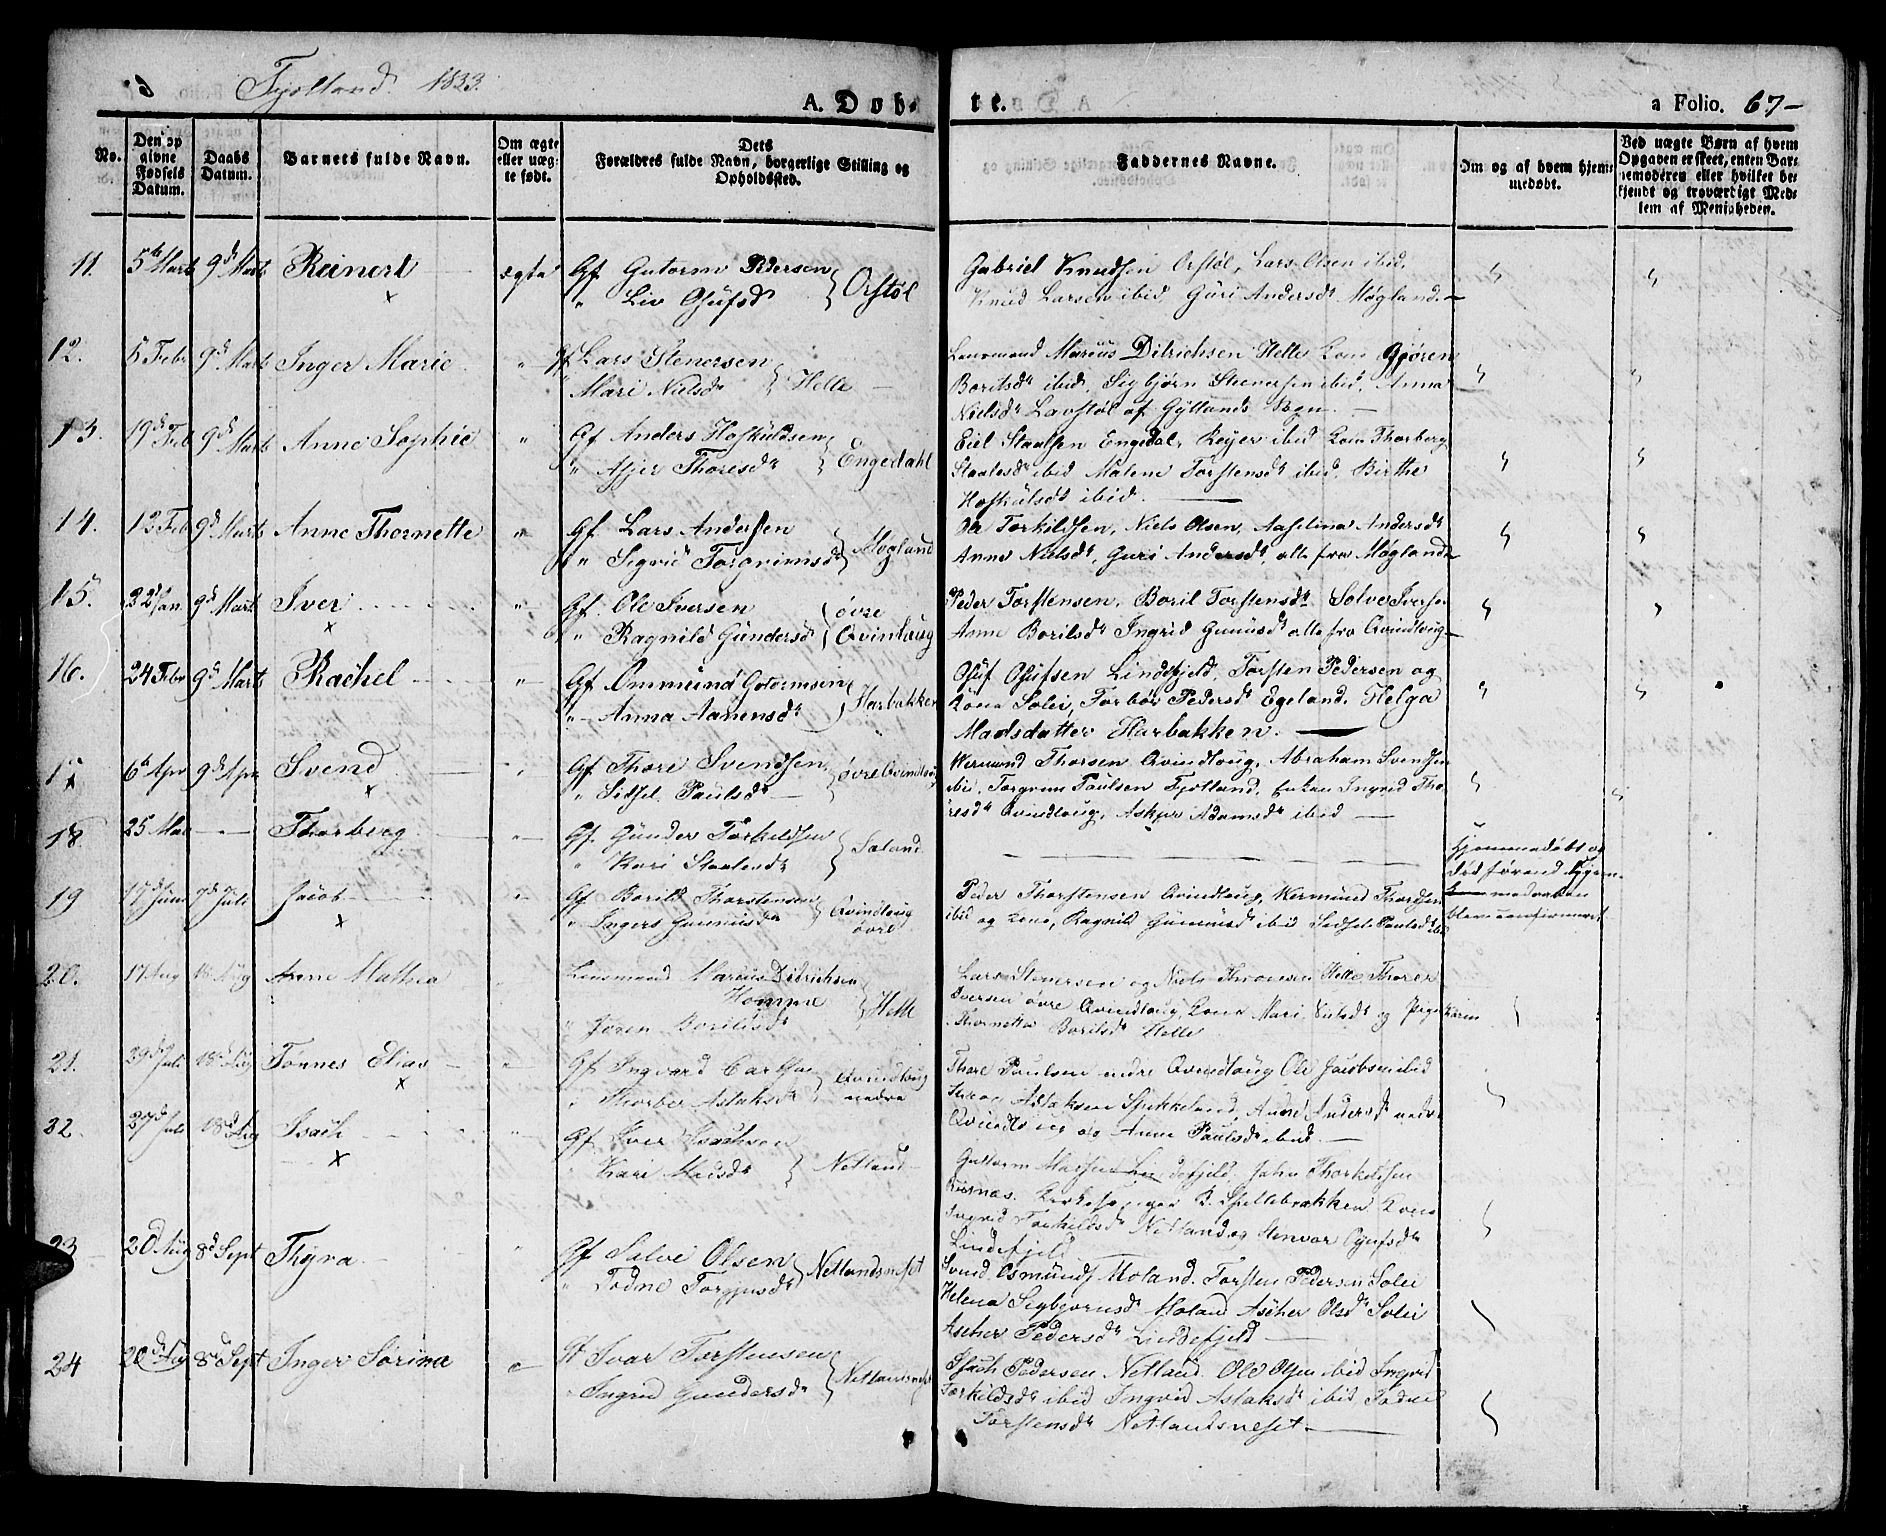 Fjotland 1833.
A. Døbte.
a Folio. 67-
No.
Den op givne Fødsels Datum.
Daabs Datum.
Barnets fulde Navn.
Om ægte eller uægte født.
Dets Forældres fulde Navn, borgerlige Stilling og Opholdssted.
Faddernes Navne.
Om og af hvem hjemmedøbt.
Ved uægte Børn af hvem Opgaven er skeet, enten Barnemoderen eller hvilket bekjendt og troværdigt Medlem af Menigheden.
11. 5te Marts 9de Marts Reinert ægte Gf Gutorm Pedersen
" Liv Osufsd } Orstøl
Gabriel Knudsen Orstøl, Lars Olsen ibid,
Knud Larsen ibid, Guri Andersdr Møgland.
12. 5 Febr 9de Marts Inger Marie " Gf Lars Stenersen
" Mari Nielsdr } Helle
Lensmand Marcus Ditrichsen Helle Kone Gjøren
Boritsdr ibid, Sigbjørn Steenersen ibid, Anna
Nielsdr Lavstøl af Gyllands Sogn.
13. 19de Feb 9de Marts Anne Sophie " Gf Anders Hofkuldsen
" Asjer Thoresdr } Engedahl
Eiel Staalsen Engedal, Reyer ibid Kone Thorberg
Staalesdr ibid Malene Torstensdr ibid, Birthe
Hofkulsdr ibid.
14. 12 Feb 9de Marts Anne Thornette " Gf Lars Andersen
" Sigrid Torgrimsdr } Møgland
Ole Torkildsen, Niels Olsen, Aaselina Andersdr
Anne Nielsdr, Guri Andersdr, alle fra Møgland
15. 22 Jan 9de Marts Iver " Gf Ole Iversen
" Ragnild Gundersdr } øvre Qvinlaug
Peder Torstensen, Boril Torstensdr Solve Iversen
Anne Borilsdr Ingrid Gunusdr alle fra Qvindlaug
16. 24 Febr 9de Marts Rachel " Gf Ommund Gotormsen
" Anna Aanensdr } Harbakken
Osuf Osufsen Lindefjeld, Torsten Pedersen og
Kone Solei, Torbor Pedersdr Egeland. Helga
Madsdatter Harbakken.
17 6te Apr 9de Apr Svend " Gf Thore Svendsen
" Sidsel Paulsdr } øvre Qvindlaug
Wermund Thorsen Qvindlaug, Abraham Svendsen
ibid, Torgrim Paulsen Fjotland, Enken Ingrid Tho
resdr Qvindlaug, Askjer Adamsdr ibid
18 25 Mai Thorberg " Gf. Gunder Torkildsen
" Kari Staalesdr } Saland
Hjemmedøbt og
død førend Hjem
medaaben
blev confirmeret
19 17de Juni 7de Juli Jacob " Gf Borild Thorstensen
" Ingers Gunnildsdr } Qvindlaug øvre
Peder Thorstensen Qvindlaug, Wermund Thorsen
ibid og Kone, Ragnild Gunmusd ibid Sidsel Paulsdr ibid
20. 17 Aug 18 Aug Anne Mathea Lensmand Marcus Ditrichsen
Homme
" Jøren Borildsdr } Helle
Lars Stenersen og Niels Thronsen Helle, Thorer
Iversen øvre Qvindlaug, Kone Mari Nielsdr og Pige Karen
Thornetta Borilsdr Helle
21. 29de Juli 18de Aug Tønnes Elias " Gf Ingvard Carlsen
" Thorber Aslaksdr } Qvindlaug nedre
Thore Paulsen nedre Qvindlaug Ole Jacobsen ibid
Aslaksen Spikkeland, Andersdr nedre
Qvindlaug og Anne Paulsdr ibid.
22. 27de Juli 18de Aug Isach " Gf Iver Isachsen
" Kari Madsdr } Netland
Guttorm Madsen Lindefjeld, John Thorkeldsen
Risnæs. Kirkesanger B. Spellebrakken Kone
Ingrid Torkildsdr Netland og Stenvor Osufsdr
Lindefjeld
23 20de Aug 8de Sept Thyra " Gf Salve Olsen
" Todne Torgjusdr } Netlandsneset
Svend Osmunds Moland. Torsten Pedersen Solei
Helena Sigbjørnsdr Moland Ascher Olsdr Solei
Ascher Pedersdr Lindefjeld
24 20de Aug 8de Sept Inger Sørine " Gf Ivar Torstensen
" Ingrid Gundersdr } Netlandsneset
Isach Pedersen Netland. Ole Olsen ibid Ingrid
Torkildsdr ibid Ingrid Aslaksdr ibid Todne
Torstensdr Netlandsneset.